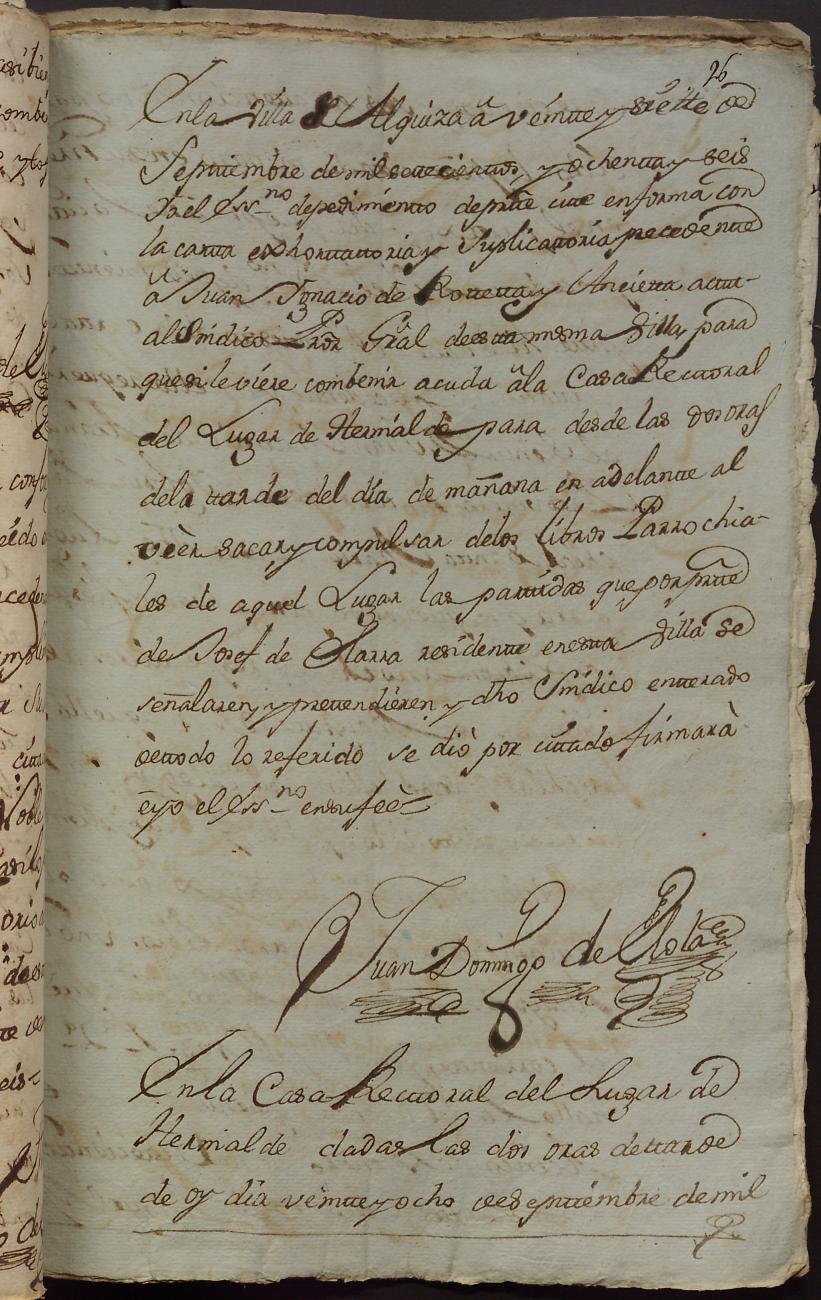 26
En la Villa de Alquiza à veinte y sieite de
Septiembre de mil setecientos, y ochenta y seis
Yo el Ess.no de pedimento de prte cite en forma con
la carta exhortattoria y suplicattoria precedente
à Juan Ygnacio de Rotteta y Ancieta actu-
al Sindico Pror Gral de esta misma Villa, para
que si le viere combenir acuda à la Casa Rectoral
del Lugar de Hernialde para desde las dos oras
de la tarde del dia de mañana en adelante al
veèr sacar y compulsar de los libros Parrochia-
les de aquel Lugar las partidas que por prte
de Josef de Olarra residente en esta Villa se
señalaren, y pretendieren, y dho Sindico enterado
de todo lo referido se diò por citado firmarà
e yo el Ess.no en su feè
Juan Domingo de
En la Casa Rectoral del Lugar de
Hernialde dadas las dos oras de tarde
de oy dia veinte y ocho de septiembre de mil